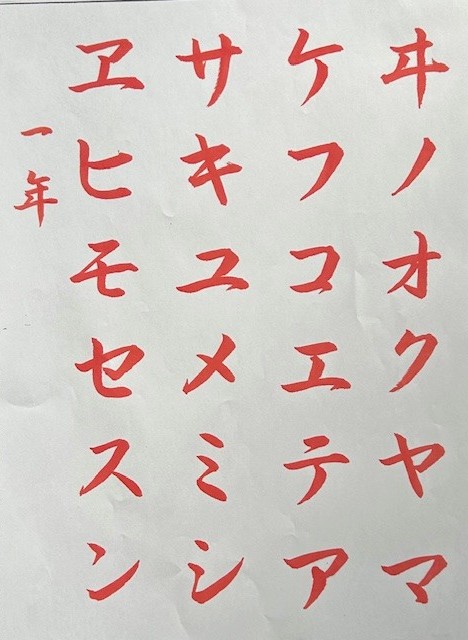 ヰノオクヤマ
ケフコエテア
サキユメミシ
ヱヒモセスン
一年